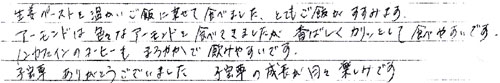 生姜ペーストを温かいご飯に乗せて食べました、とてもご飯がすすみます。
アーモンドは色々なアーモンドを食べてきましたが香ばしくカリッとして食べやすいです。
ノンカフェインのコーヒーもまろやかで飲みやすいです。
子宝草ありがとうございました 子宝草の成長が日々楽しみです